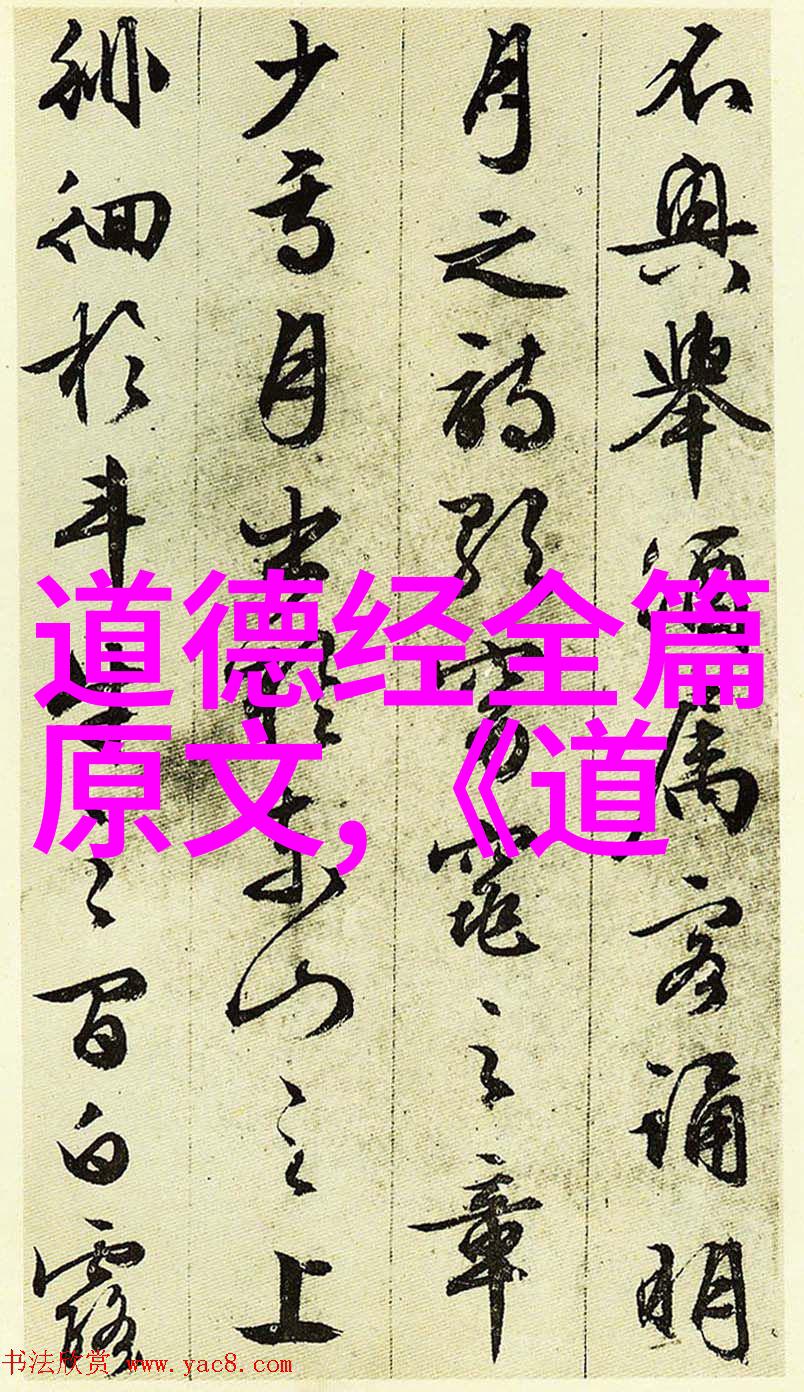 不興舉酒屬客誦明
月之詩歌窈窕之章
少焉月出於東山之上
徘徊於斗牛之間白露
道德经全篇
原文,《道
书法欣赏 www.yac8.com